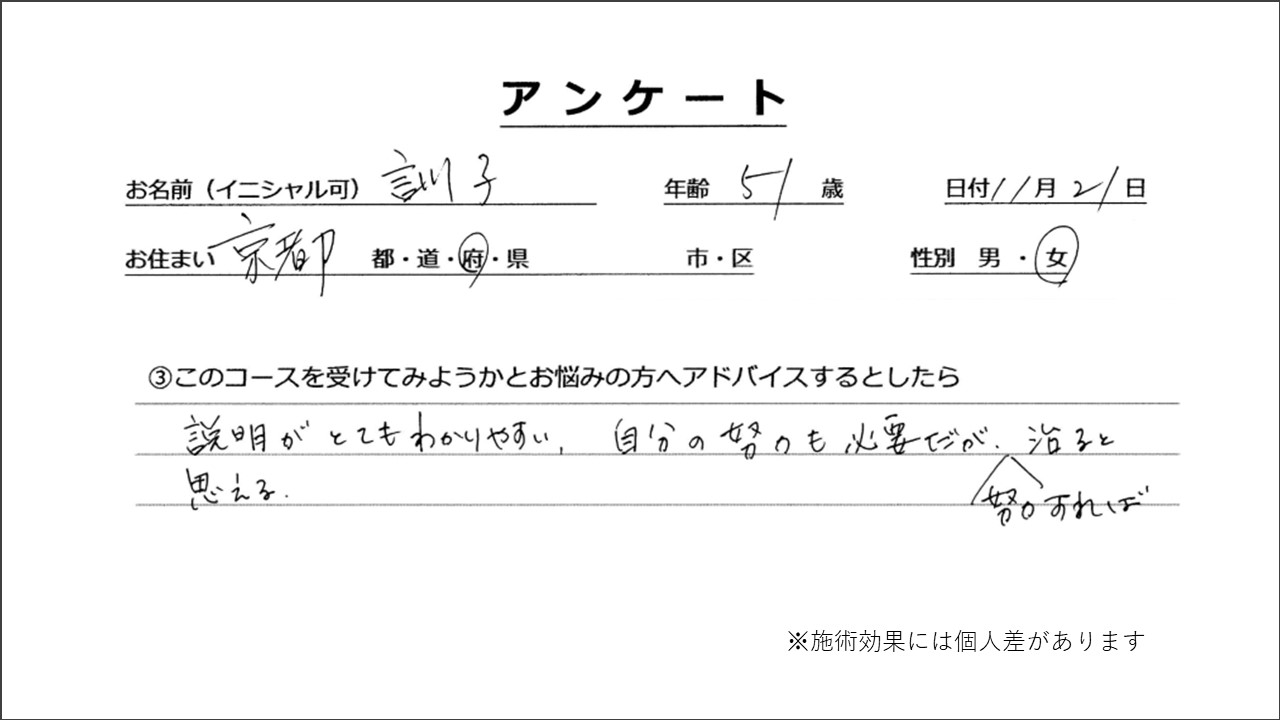 アンケート
お名前（イニシャル可） 訓子 年齢 51 歳 日付 11月21日
お住まい 京都 都・道・府・県 市・区 性別 男・女
③このコースを受けてみようかとお悩みの方へアドバイスするとしたら
説明がとてもわかりやすい、自分の努力も必要だが、治ると
努力すれば
思える。
※施術効果には個人差があります